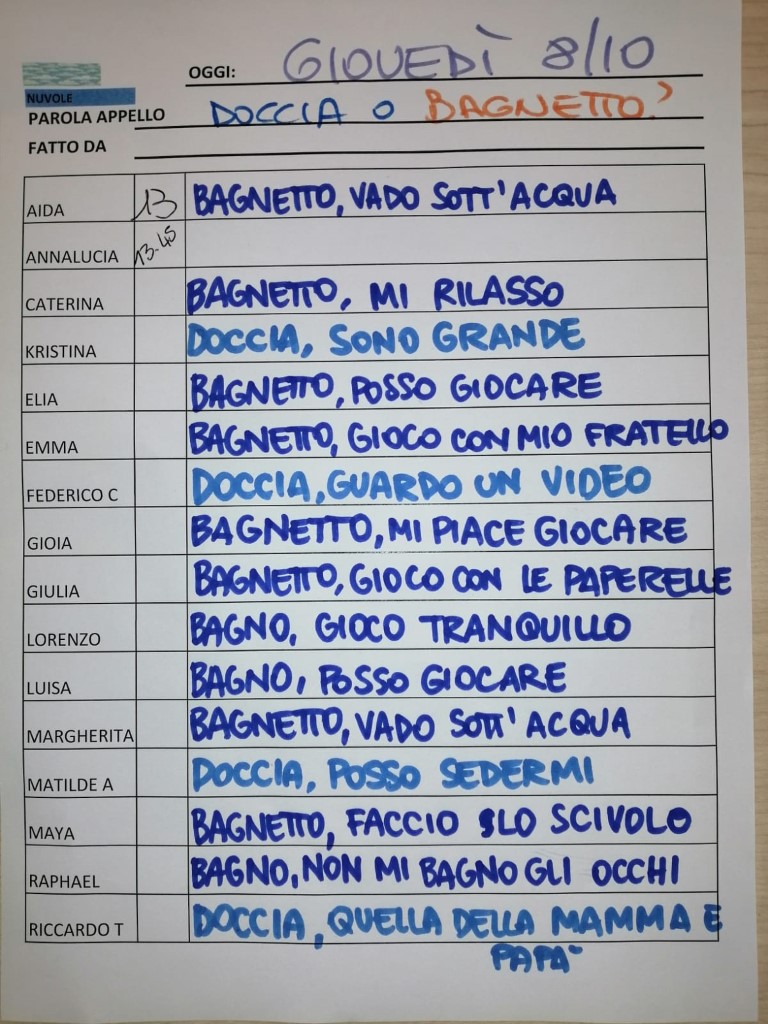 OGGI: GIOVEDÌ 8/10
NUVOLE
PAROLA APPELLO DOCCIA O BAGNETTO?
FATTO DA
AIDA 13 BAGNETTO, VADO SOTT'ACQUA
ANNALUCIA 13.45
CATERINA BAGNETTO, MI RILASSO
KRISTINA DOCCIA, SONO GRANDE
ELIA BAGNETTO, POSSO GIOCARE
EMMA BAGNETTO, GIOCO CON MIO FRATELLO
FEDERICO C DOCCIA, GUARDO UN VIDEO
GIOIA BAGNETTO, MI PIACE GIOCARE
GIULIA BAGNETTO, GIOCO CON LE PAPERELLE
LORENZO BAGNO, GIOCO TRANQUILLO
LUISA BAGNO, POSSO GIOCARE
MARGHERITA BAGNETTO, VADO SOTT'ACQUA
MATILDE A DOCCIA, POSSO SEDERMI
MAYA BAGNETTO, FACCIO LO SCIVOLO
RAPHAEL BAGNO, NON MI BAGNO GLI OCCHI
RICCARDO T DOCCIA, QUELLA DELLA MAMMA E
PAPÀ